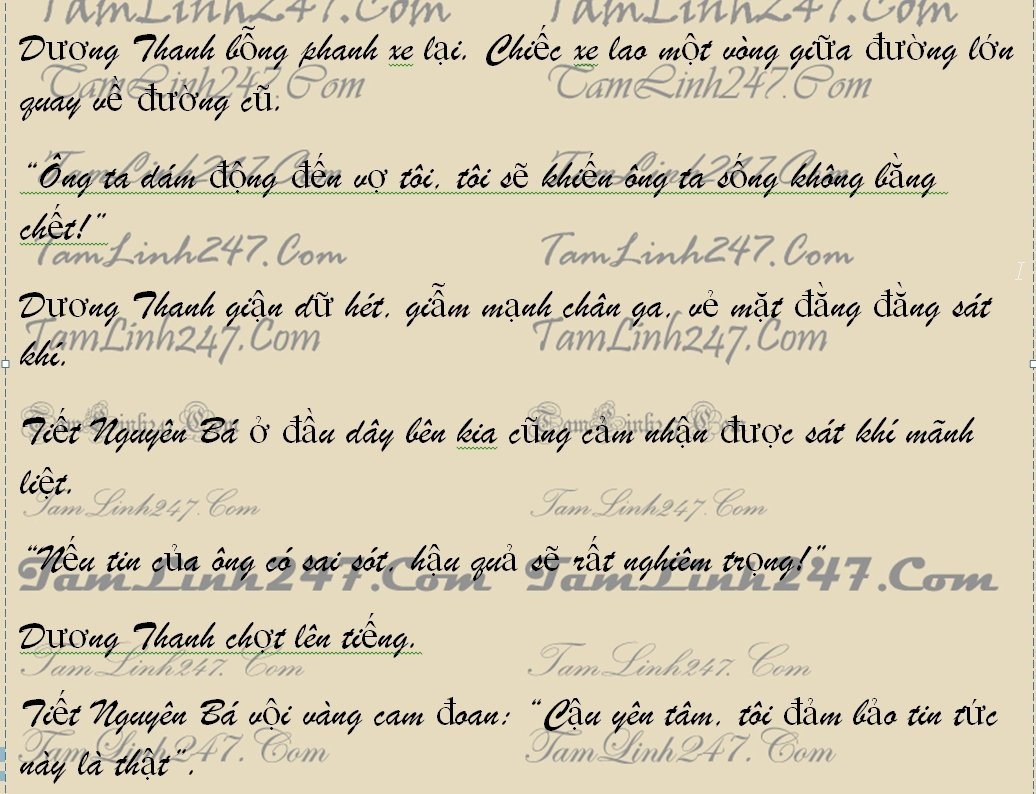 TamLinh247.Com TamLinh247.Com
Dương Thanh bỗng phanh xe lại. Chiếc xe lao một vòng giữa đường lớn
TamLinh247.Com TamLinh247.Com
quay về đường cũ:
TamLinh247.Com TamLinh247.Com
“Ông ta dám động đến vợ tôi, tôi sẽ khiến ông ta sống không bằng
chết!”
TamLinh247.Com TamLinh247.Com
Dương Thanh giận dữ hét, giẫm mạnh chân ga, vẻ mặt đằng đằng sát
TamLinh247.Com TamLinh247.Com
khí.
TamLinh247.Com TamLinh247.Com
Tiết Nguyên Bá ở đầu dây bên kia cũng cảm nhận được sát khí mãnh
liệt.
TamLinh247.Com TamLinh247.Com
“Nếu tin của ông có sai sót, hậu quả sẽ rất nghiêm trọng!”
TamLinh247.Com TamLinh247.Com
Dương Thanh chợt lên tiếng.
TamLinh247.Com TamLinh247.Com
Tiết Nguyên Bá vội vàng cam đoan: “Cậu yên tâm, tôi đảm bảo tin tức
TamLinh247.Com TamLinh247.Com
này là thật”.